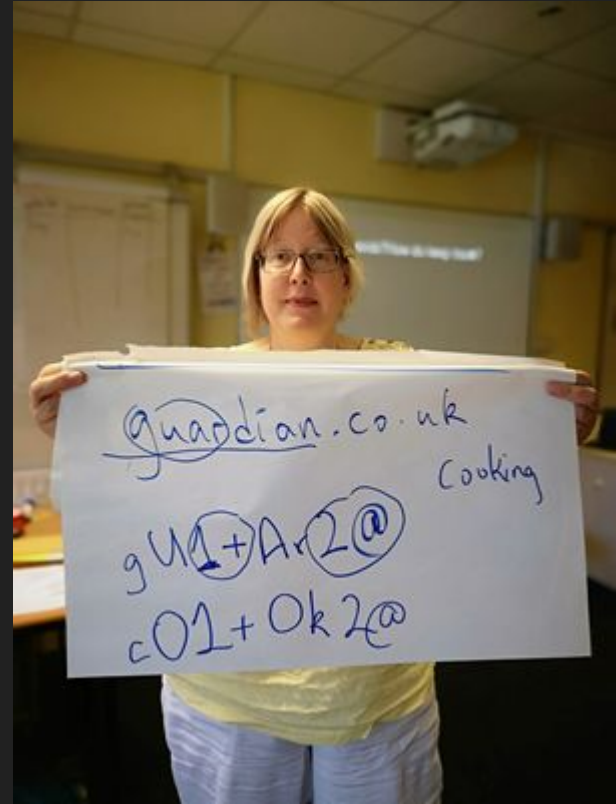 guardian.co.uk
Cooking
gU1+Ar2@
cO1+Ok2@